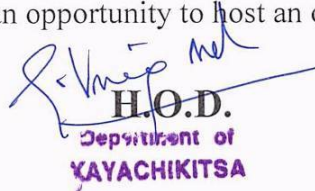 an opportunity to host an
H.O.D.
Department of
KAYACHIKITSA